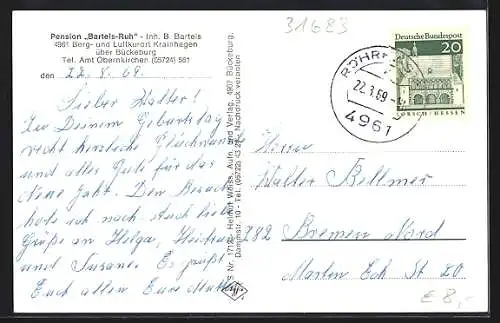 Pension „Bartels-Ruh" - Inh. B. Bartels
4961 Berg- und Luftkurort Krainhagen
über Bückeburg
Tel. Amt Obernkirchen (05724) 561
den 22. 8. 69.
Lieber Walter!
Zu Deinem Geburtstag
recht herzliche Glückwünsche
und alles Gute für das
neue Jahr. Den Besuch
hole ich nach. Auch liebe
Grüße an Helga,
und Susanne. Es grüßt
Euch allen Eure Mutti
Nr. 1712 - Helmut Weiss, Aufn. und Verlag, 4967 Bückeburg,
Dammstr. 10 - Tel. (05722) 43 29 - Nachdruck verboten
31683
Deutsche Bundespost
20
LORSCH/HESSEN
22.8.69
4961
Herrn
Walter Bellmer
282 Bremen Nord
Marten Eck St 20
€ 8,-